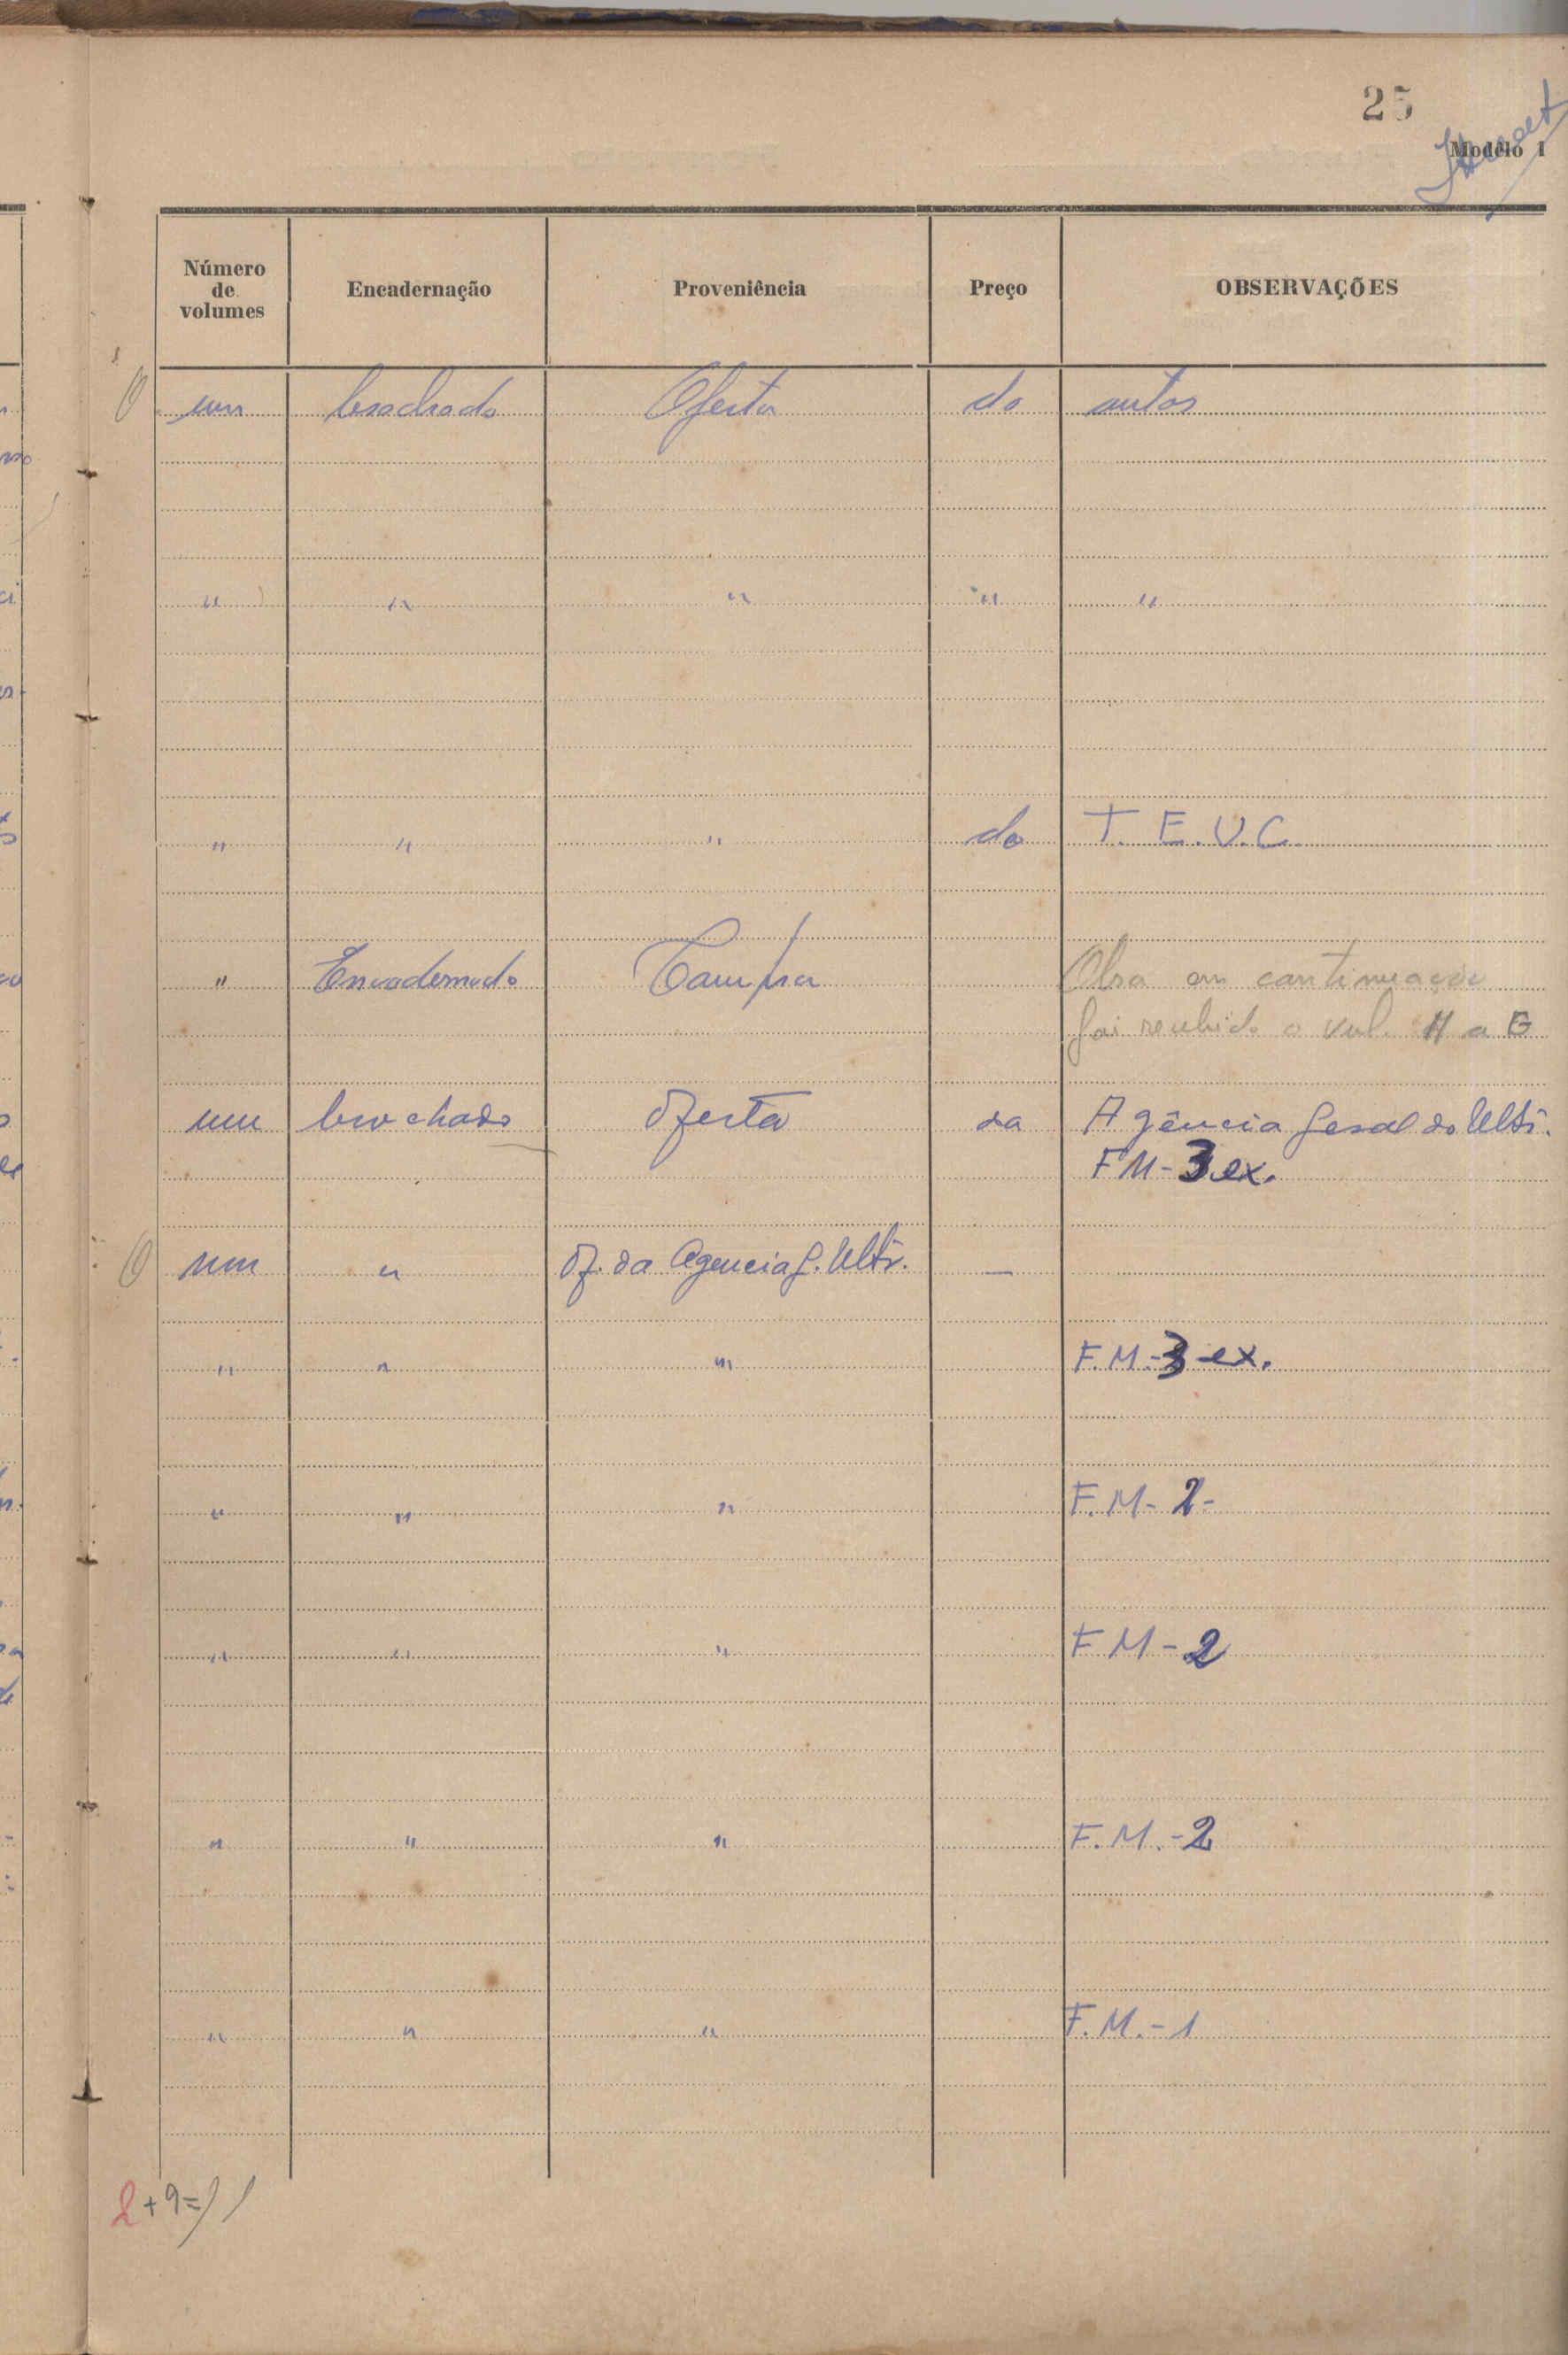 25
Modêlo 1
Número de volumes Encadernação Proveniência Preço OBSERVAÇÕES
um brochado Oferta do autor
" " " " "
" " " do T. E. U. C.
" Encadernado Compra Obra em continuação
foi recebido o vol. H a G
um brochado Oferta da Agência Geral do Ultr.
FM - 3 ex.
um " Of. da Agencia G. Ultr. —
" " " F. M. - 3 ex.
" " " F. M - 2 -
" " " F M - 2
" " " F. M. - 2
" " " F. M. - 1
2 + 9 = 11